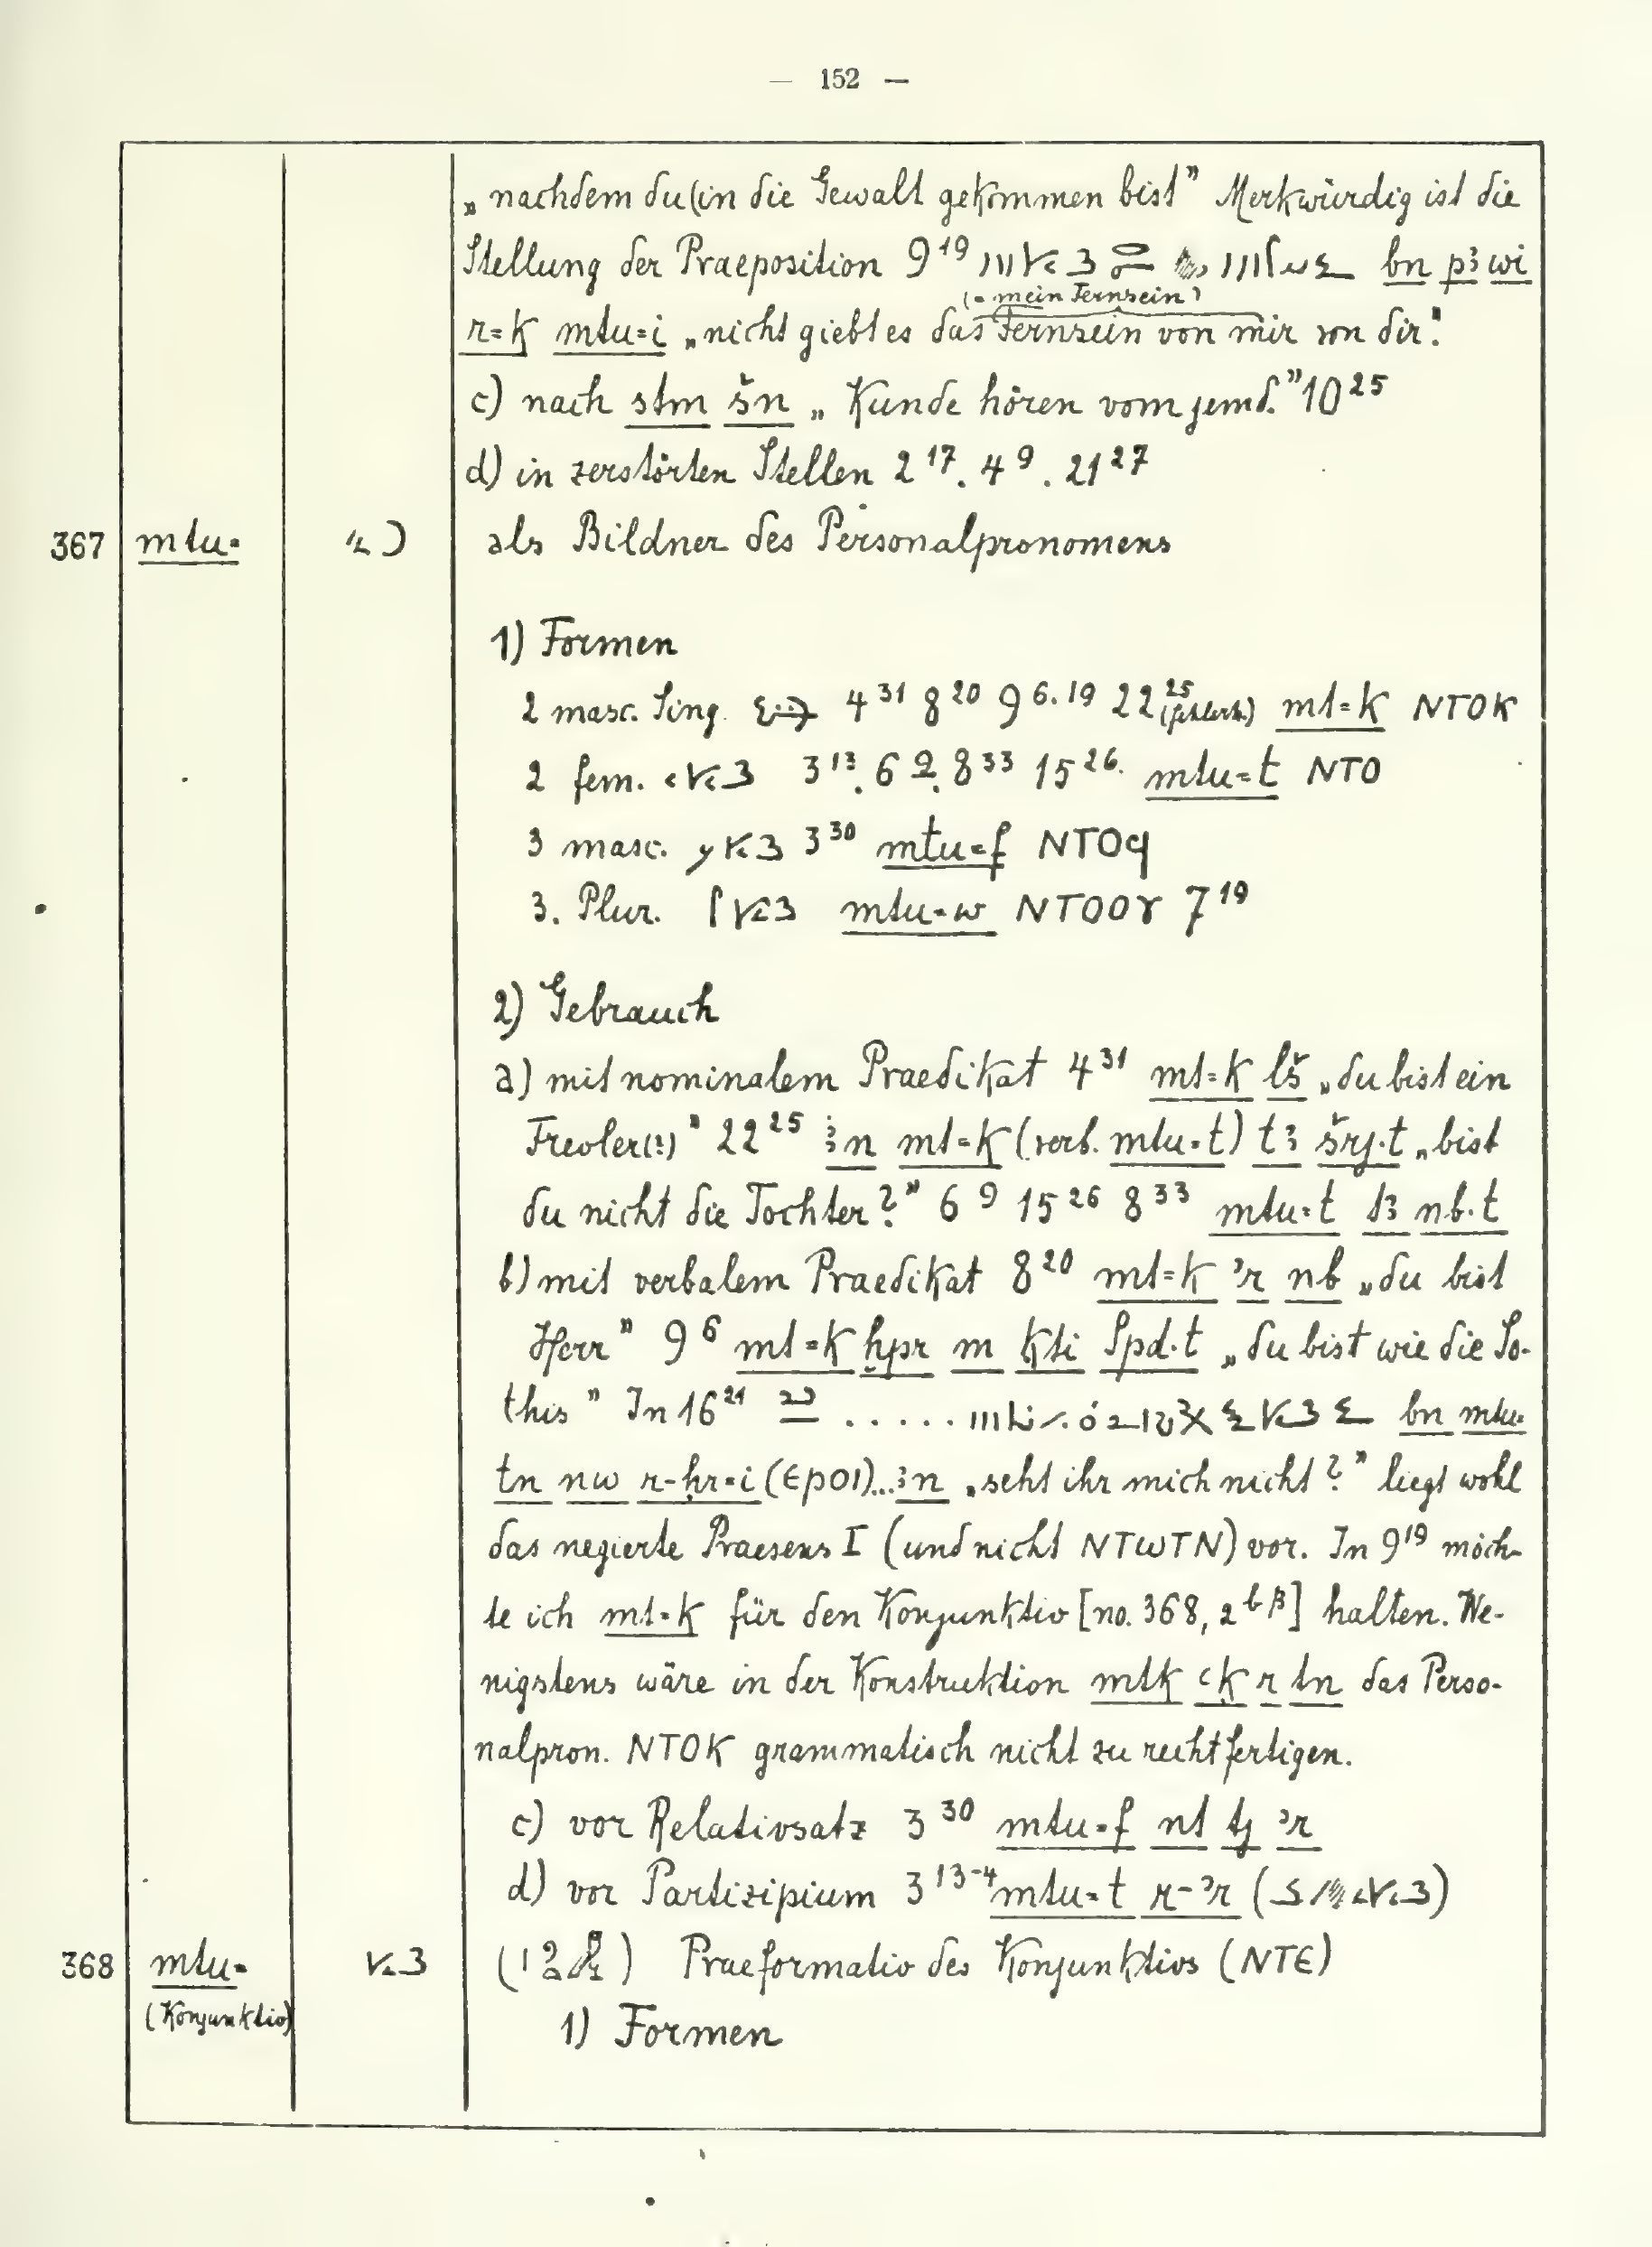 — 152 —
„nachdem du (in die Gewalt gekommen bist” Merkwürdig ist die
Stellung der Praeposition 9¹⁹ bn pꜣ wi
(= mein Fernsein?)
r=k mtu=i „nicht giebt es das Fernsein von mir von dir.”
c) nach stm šn „Kunde hören vom jemd.” 10²⁵
d) in zerstörten Stellen 2¹⁷. 4⁹. 21²⁷
367 mtu= als Bildner des Personalpronomens
1) Formen
2 masc. Sing. 4³¹ 8²⁰ 9⁶·¹⁹ 22²⁵ (fehlerh.) mt=k NTOK
2 fem. 3¹³. 6⁹. 8³³ 15²⁶. mtu=t NTO
3 masc. 3³⁰ mtu=f NTOϥ
3. Plur. mtu=w NTOOϒ 7¹⁹
2) Gebrauch
a) mit nominalem Praedikat 4³¹ mt=k lš „du bist ein
Frevler(?)” 22²⁵ ꜣn mt=k (verb. mtu=t) tꜣ šrj·t „bist
du nicht die Tochter?” 6⁹ 15²⁶ 8³³ mtu=t tꜣ nb·t
b) mit verbalem Praedikat 8²⁰ mt=k ʾr nb „du bist
Herr” 9⁶ mt=k ḫpr m kti Spd·t „du bist wie die So-
this” In 16²¹ ..... bn mtu=
tn nw r-ḥr=i (ⲈⲢⲞⲒ)...ꜣn „seht ihr mich nicht?” liegt wohl
das negierte Praesens I (und nicht NTⲰTN) vor. In 9¹⁹ möch-
te ich mt=k für den Konjunktiv [no. 368, 2ᵇᵝ] halten. We-
nigstens wäre in der Konstruktion mtk ꜥk r tn das Perso-
nalpron. NTOK grammatisch nicht zu rechtfertigen.
c) vor Relativsatz 3³⁰ mtu=f nt tj ʾr
d) vor Partizipium 3¹³⁻⁴ mtu=t r-ʾr
368 mtu= Praeformativ des Konjunktivs (NTⲈ)
(Konjunktiv)
1) Formen